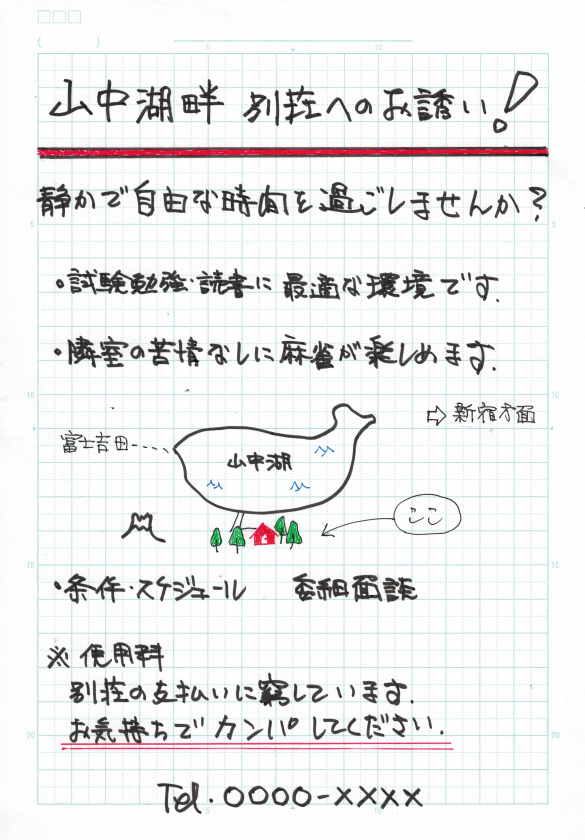 山中湖畔 別荘へのお誘い!
静かで自由な時間を過ごしませんか?
・試験勉強・読書に最適な環境です.
・隣室の苦情なしに麻雀が楽しめます.
⇨ 新宿方面
富士吉田----
山中湖
ここ
・条件・スケジュール 委細面談
※ 使用料
別荘の支払いに窮しています.
お気持ちでカンパしてください.
Tel・0000-××××